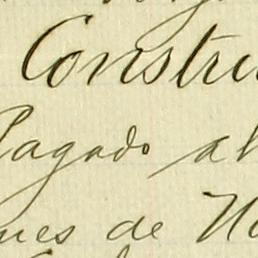 Constru
Pagado al
nes de No